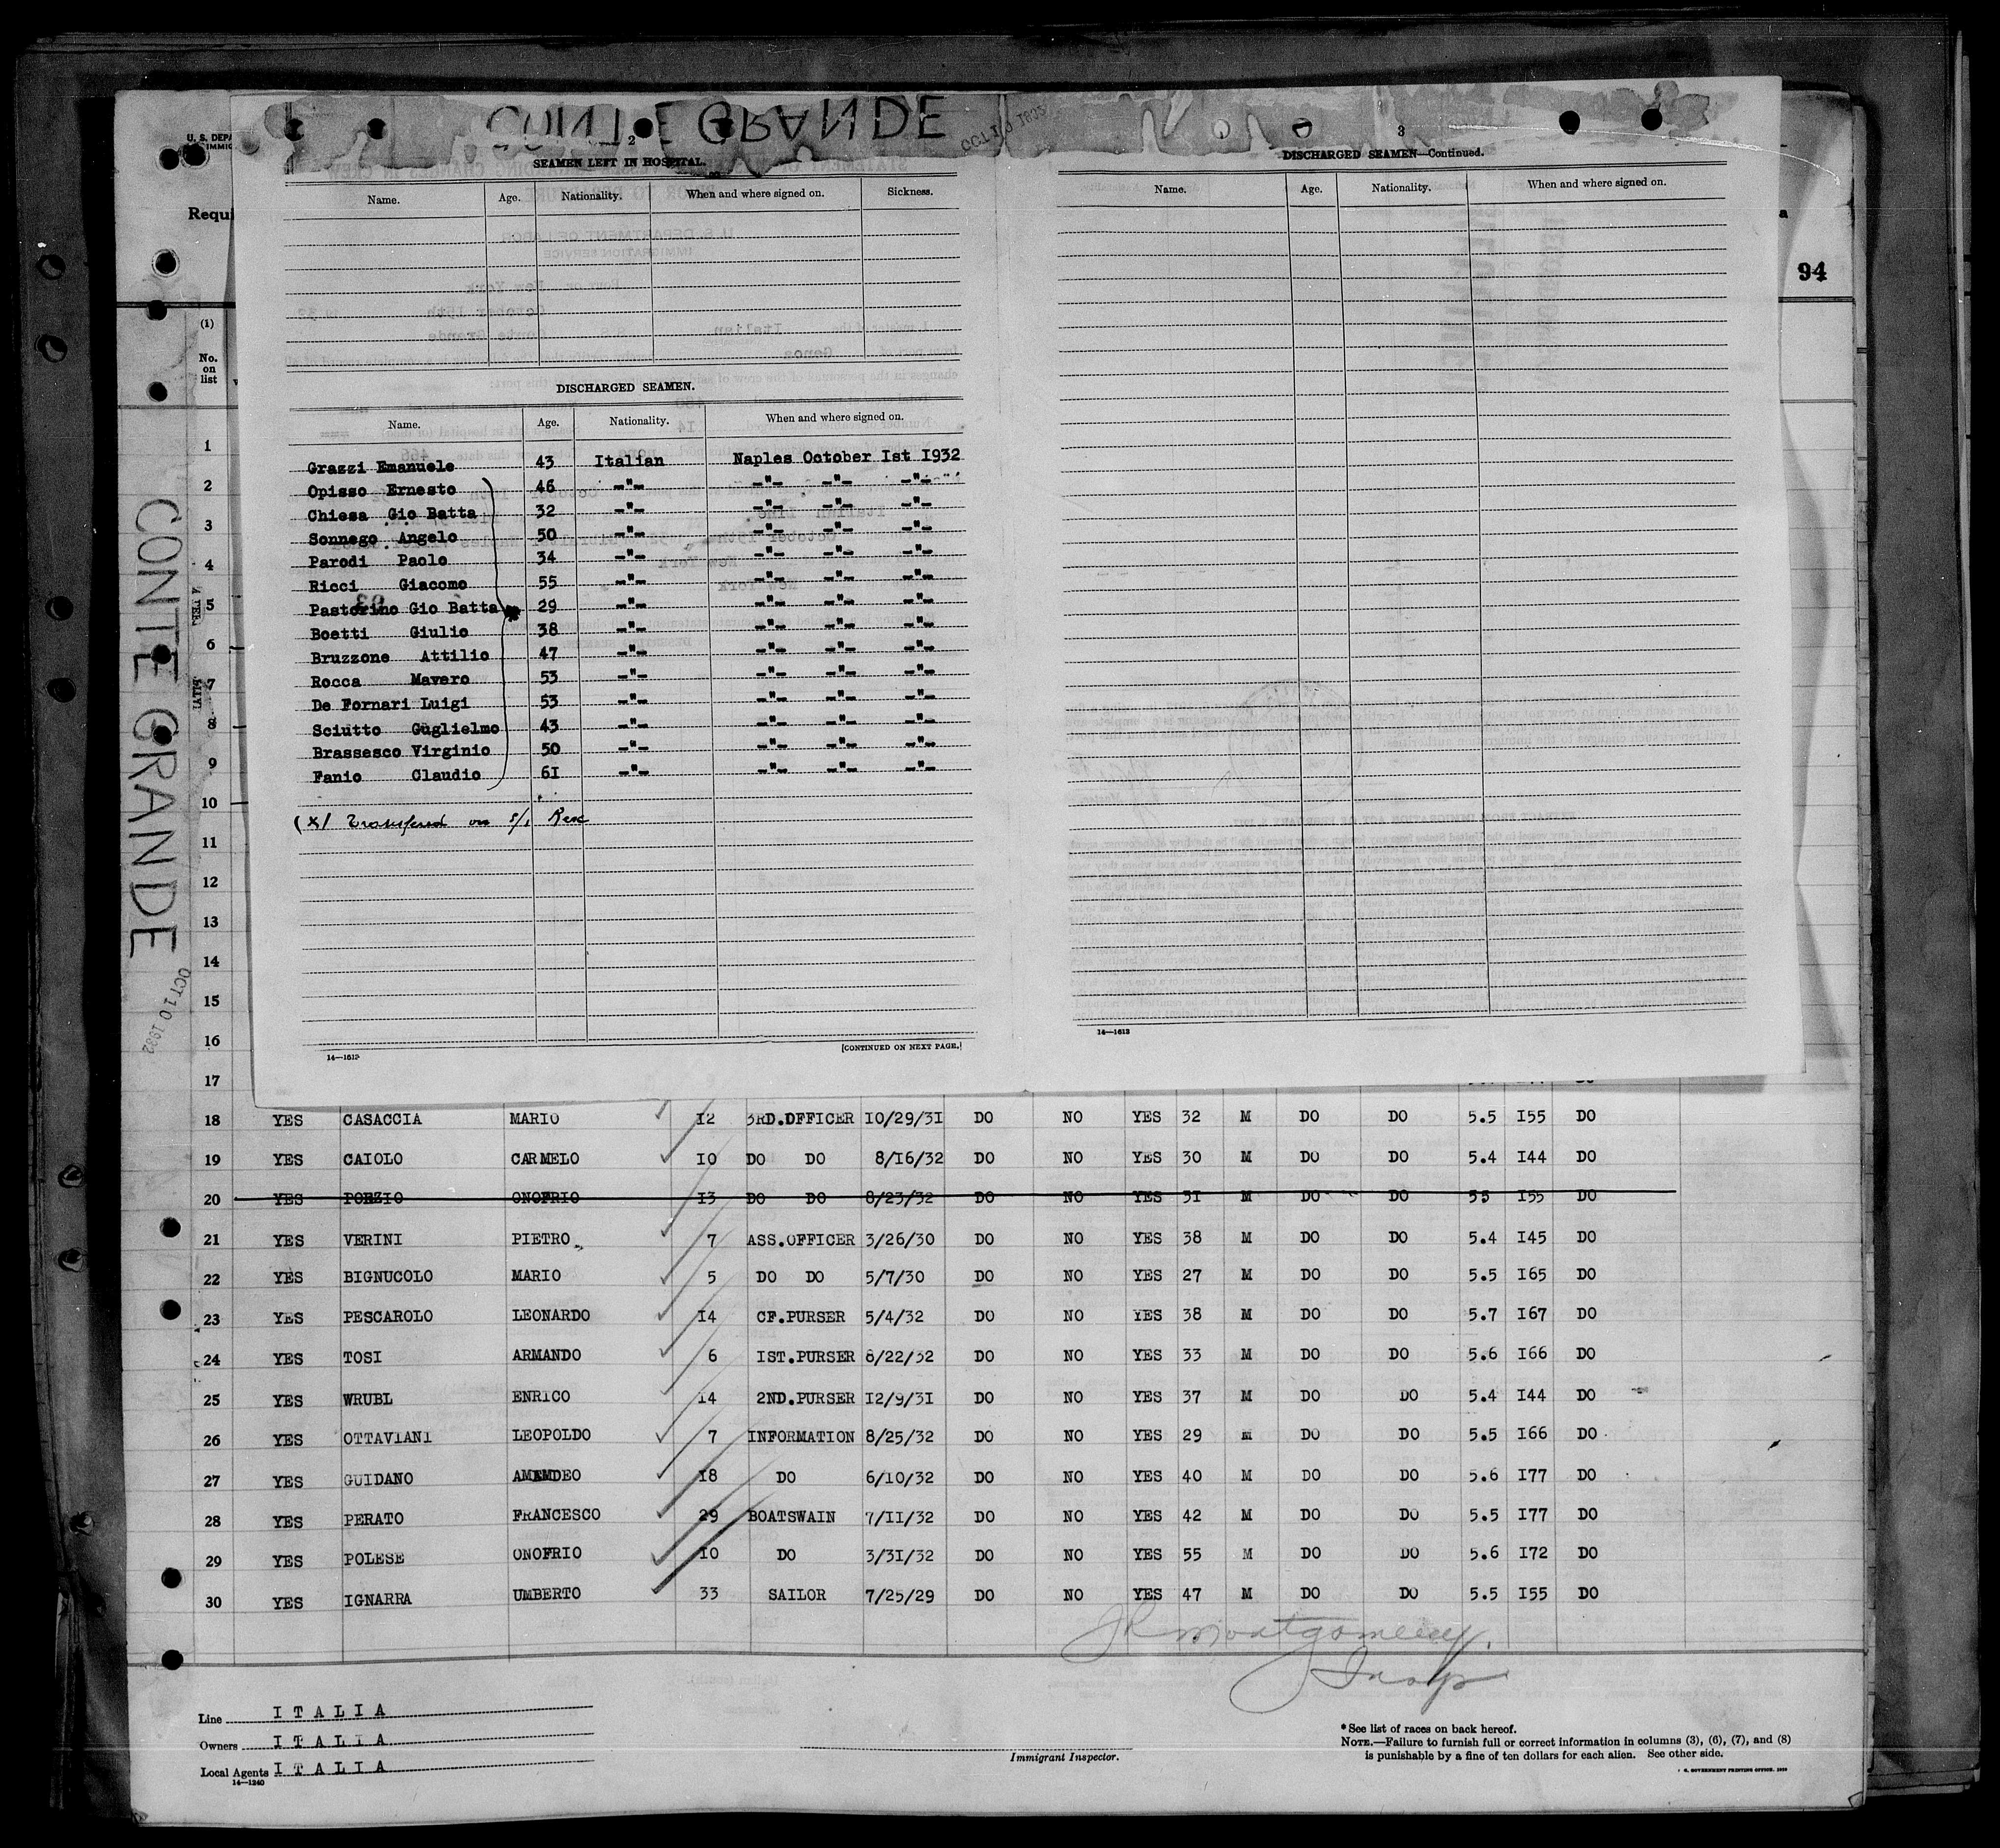 CONTE GRANDE
OCT 10 1932
U. S. DEPA
IMMIG
Requi
94
2
SEAMEN LEFT IN HOSPITAL.
Name. Age. Nationality. When and where signed on. Sickness.
DISCHARGED SEAMEN.
Name. Age. Nationality. When and where signed on.
Grazzi Emanuele 43 Italian Naples October Ist I932
Opisso Ernesto 46 -"- -"- -"- -"-
Chiesa Gio Batta 32 -"- -"- -"- -"-
Sonnego Angelo 50 -"- -"- -"- -"-
Parodi Paolo 34 -"- -"- -"- -"-
Ricci Giacomo 55 -"- -"- -"- -"-
Pastorino Gio Batta 29 -"- -"- -"- -"-
Boetti Giulio 38 -"- -"- -"- -"-
Bruzzone Attilio 47 -"- -"- -"- -"-
Rocca Mavero 53 -"- -"- -"- -"-
De Fornari Luigi 53 -"- -"- -"- -"-
Sciutto Guglielmo 43 -"- -"- -"- -"-
Brassesco Virginio 50 -"- -"- -"- -"-
Fanio Claudio 6I -"- -"- -"- -"-
(x) Transfered on s/s Rex
14—1613
[CONTINUED ON NEXT PAGE.]
3
DISCHARGED SEAMEN—Continued.
Name. Age. Nationality. When and where signed on.
14—1613
CONTE GRANDE
OCT 10 1932
(1)
No. on list
1
2
3
4
5
6
7
8
9
10
11
12
13
14
15
16
17
18 YES CASACCIA MARIO I2 3RD.OFFICER IO/29/3I DO NO YES 32 M DO DO 5.5 I55 DO
19 YES CAIOLO CARMELO IO DO DO 8/I6/32 DO NO YES 30 M DO DO 5.4 I44 DO
20 YES PORZIO ONOFRIO I3 DO DO 8/23/32 DO NO YES 3I M DO DO 55 I55 DO
21 YES VERINI PIETRO 7 ASS.OFFICER 3/26/30 DO NO YES 38 M DO DO 5.4 I45 DO
22 YES BIGNUCOLO MARIO 5 DO DO 5/7/30 DO NO YES 27 M DO DO 5.5 I65 DO
23 YES PESCAROLO LEONARDO I4 CF.PURSER 5/4/32 DO NO YES 38 M DO DO 5.7 I67 DO
24 YES TOSI ARMANDO 6 IST.PURSER 8/22/32 DO NO YES 33 M DO DO 5.6 I66 DO
25 YES WRUBL ENRICO I4 2ND.PURSER I2/9/3I DO NO YES 37 M DO DO 5.4 I44 DO
26 YES OTTAVIANI LEOPOLDO 7 INFORMATION 8/25/32 DO NO YES 29 M DO DO 5.5 I66 DO
27 YES GUIDANO AMEDEO I8 DO 6/IO/32 DO NO YES 40 M DO DO 5.6 I77 DO
28 YES PERATO FRANCESCO 29 BOATSWAIN 7/II/32 DO NO YES 42 M DO DO 5.5 I77 DO
29 YES POLESE ONOFRIO IO DO 3/3I/32 DO NO YES 55 M DO DO 5.6 I72 DO
30 YES IGNARRA UMBERTO 33 SAILOR 7/25/29 DO NO YES 47 M DO DO 5.5 I55 DO
JR Montgomery.
Insp
Line I T A L I A
Owners I T A L I A
Local Agents I T A L I A
14—1240
Immigrant Inspector.
* See list of races on back hereof.
NOTE.—Failure to furnish full or correct information in columns (3), (6), (7), and (8)
is punishable by a fine of ten dollars for each alien. See other side.